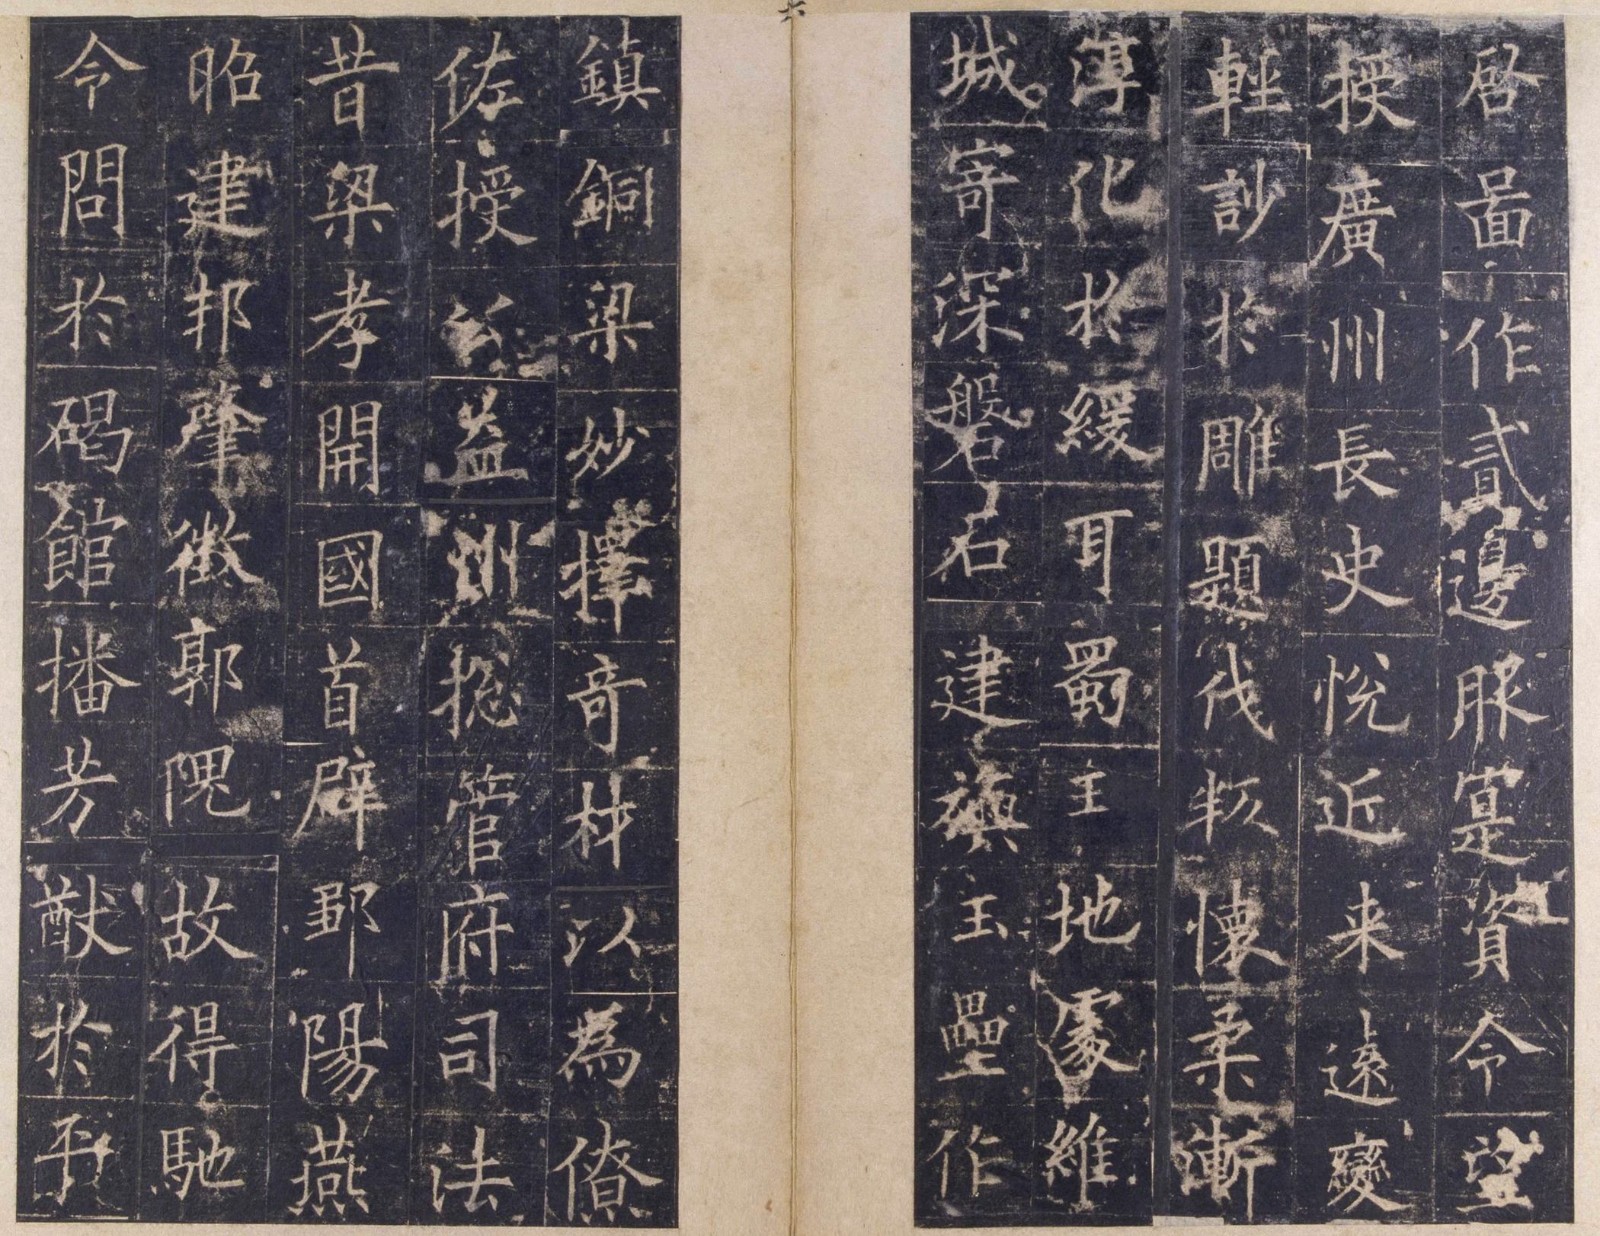 啓圖作貳邊服寔資令望
授廣州長史悅近来遠變
輕訬於雕題伐叛懷柔漸
淳化於緩耳蜀王地處維
城寄深磐石建旟玉壘作
鎮銅梁妙擇奇材以為僚
佐授公益州揔管府司法
昔梁孝開國首辟鄒陽燕
昭建邦肇徵郭隗故得馳
令問於碣館播芳猷於平